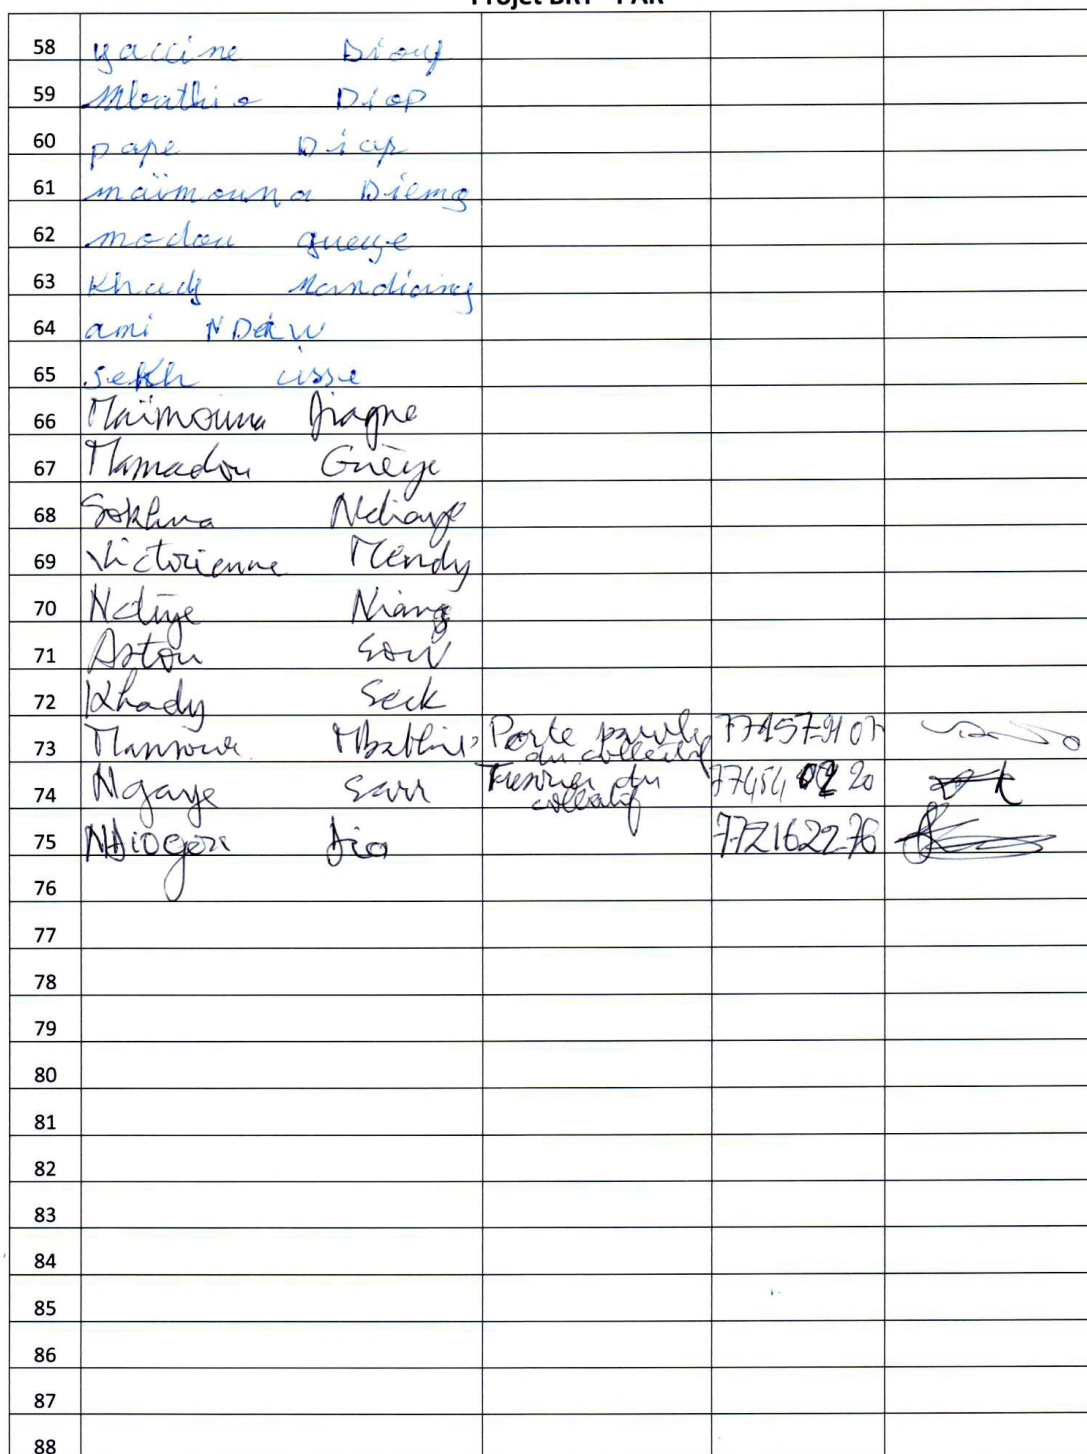 Projet BRT - PAR
58 yaccine Diouf
59 Mbathio Diop
60 pape Diop
61 maïmouna Dieng
62 modou gueye
63 Khady Mandiang
64 ami NDAW
65 sekh cisse
66 Maïmouna Diagne
67 Mamadou Guèye
68 Sokhna Ndiaye
69 Victorienne Mendy
70 Ndèye Niang
71 Astou Sow
72 Khady Seck
73 Mansour Porte parole du collectif
74 Ngaye Sarr du collectif
75 772162276
76
77
78
79
80
81
82
83
84
85
86
87
88